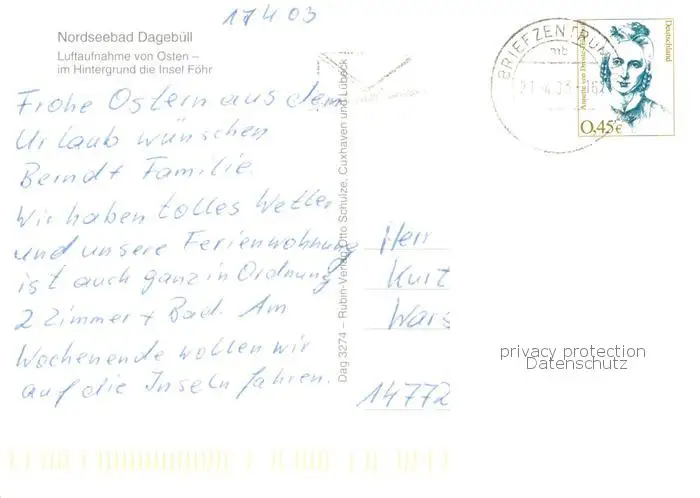 17.4.03
Nordseebad Dagebüll
Luftaufnahme von Osten –
im Hintergrund die Insel Föhr
Frohe Ostern aus dem
Urlaub wünschen
Bernd + Familie.
Wir haben tolles Wetter
und unsere Ferienwohnung
ist auch ganz in Ordnung
2 Zimmer + Bad. Am
Wochenende wollen wir
auf die Inseln fahren.
Dag 3274 – Rubin-Verlag Otto Schulze, Cuxhaven und Lübeck
BRIEFZENTRUM
mb
Deutschland
0,45€
Herr
Kurt
Wars
14772
privacy protection
Datenschutz